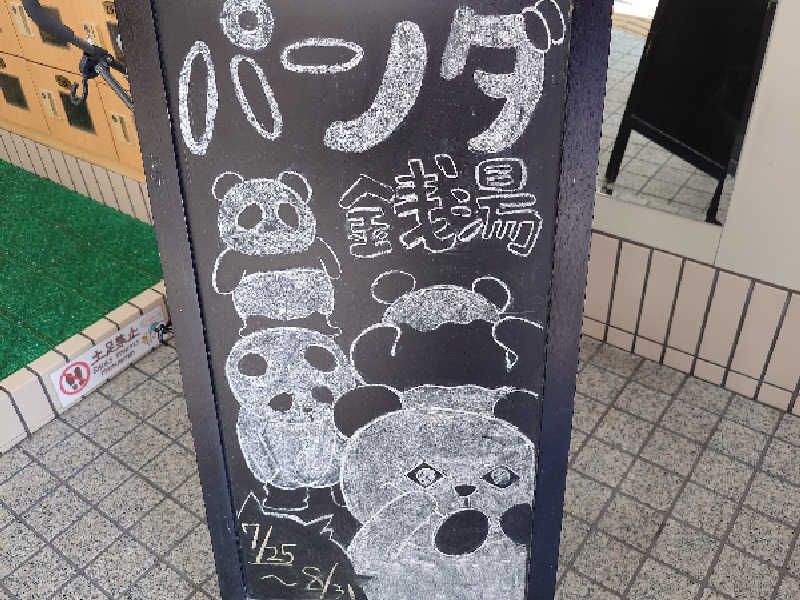 パンダ
銭湯
7/25
~8/31
土足禁止